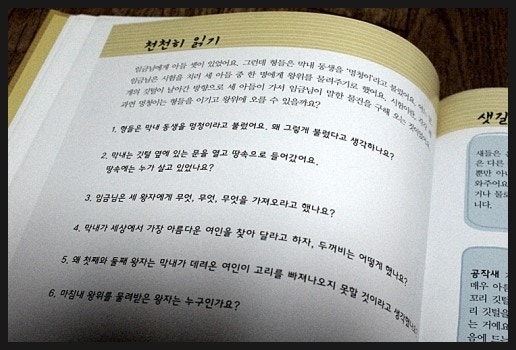 천천히 읽기
임금님에게 아들 셋이 있었어요. 그런데 형들은 막내 동생을 '멍청이'라고 불렀어요.
임금님은 시험을 치러 세 아들 중 한 명에게 왕위를 물려주기로 했어요. 시험이란,
개의 깃털이 날아간 방향으로 세 아들이 가서 임금님이 말한 물건을 구해 오는 것이었어요.
과연 멍청이는 형들을 이기고 왕위에 오를 수 있을까요?
1. 형들은 막내 동생을 멍청이라고 불렀어요. 왜 그렇게 불렀다고 생각하나요?
2. 막내는 깃털 옆에 있는 문을 열고 땅속으로 들어갔어요.
땅속에는 누가 살고 있었나요?
3. 임금님은 세 왕자에게 무엇, 무엇, 무엇을 가져오라고 했나요?
4. 막내가 세상에서 가장 아름다운 여인을 찾아 달라고 하자, 두꺼비는 어떻게 했나요?
5. 왜 첫째와 둘째 왕자는 막내가 데려온 여인이 고리를 빠져나오지 못할 것이라고 생각했나요?
6. 마침내 왕위를 물려받은 왕자는 누구인가요?
샛길
새들은
은 다른
뿐만 아니
와주어요
거나 물로
니다.
공작새
매우 아름
꼬리 깃털
리 깃털을
는 거예요
음에 드는